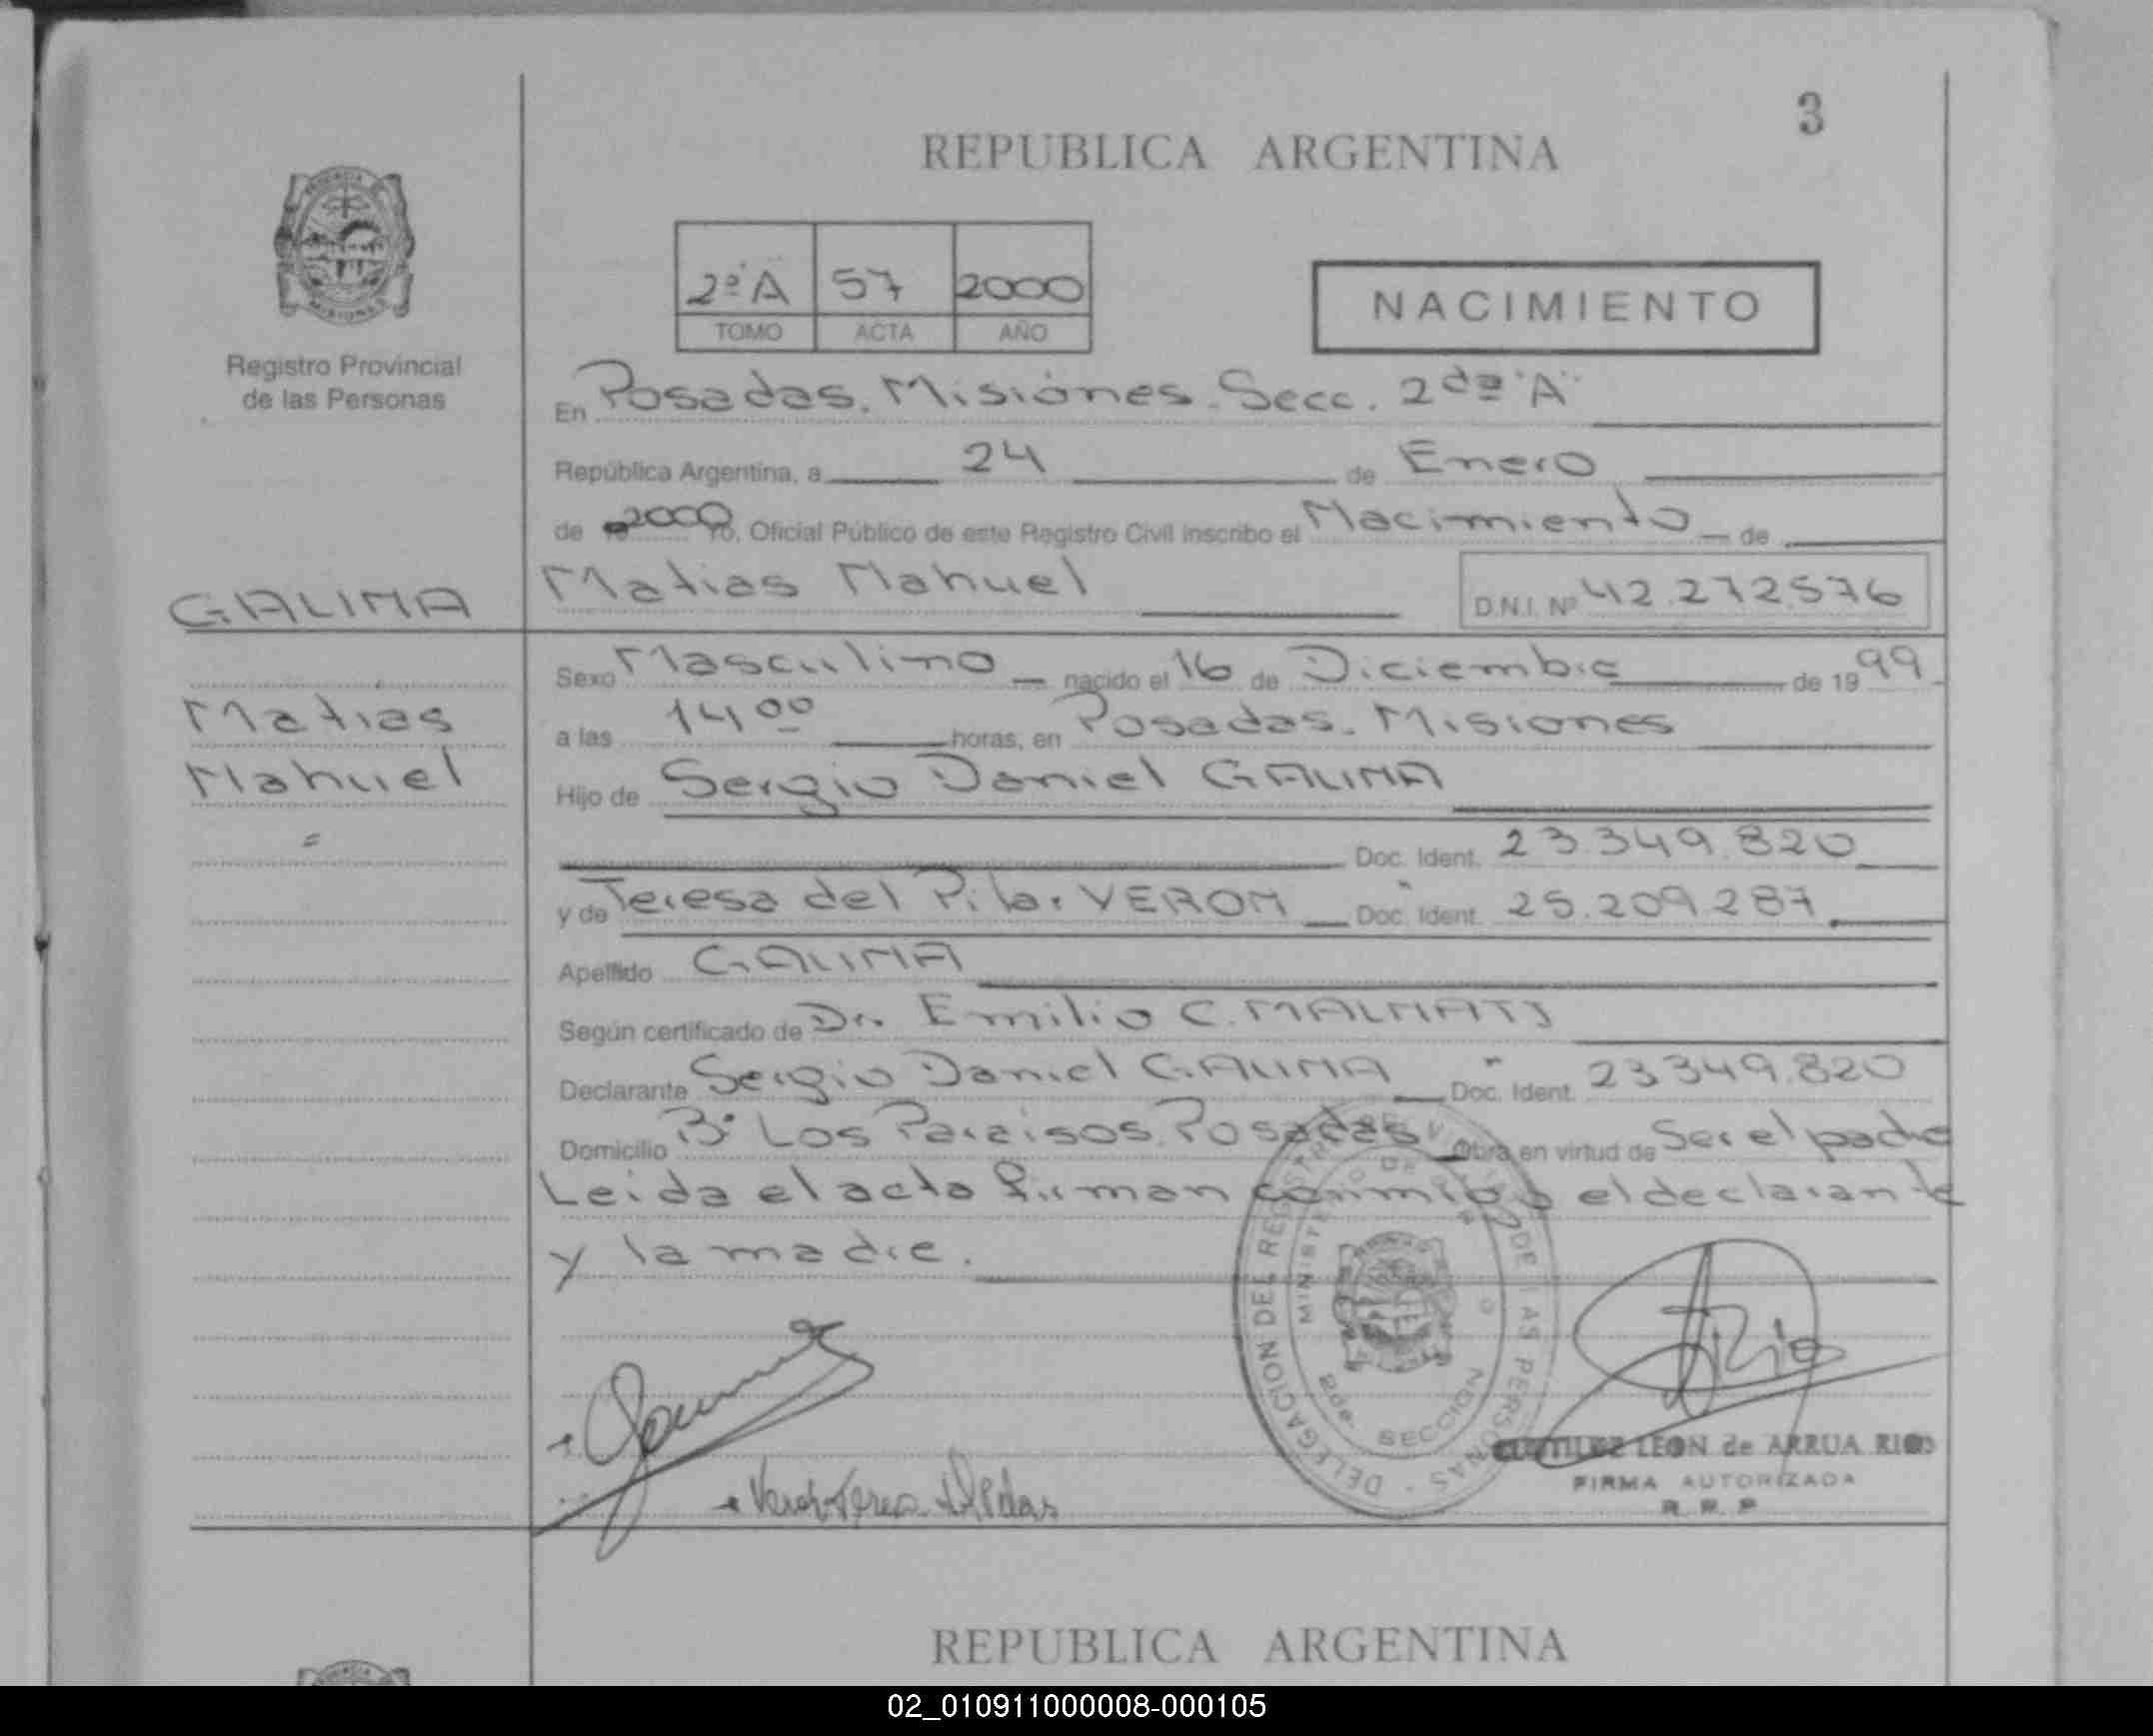 3
REPUBLICA ARGENTINA
2º A 57 2000
TOMO ACTA AÑO
NACIMIENTO
Registro Provincial
de las Personas
En Posadas. Misiones. Secc. 2da "A"
República Argentina, a 24 de Enero
de 2000 Yo, Oficial Público de este Registro Civil inscribo el Nacimiento de
GALINA
Matias Nahuel D.N.I. Nº 42.272.576
Sexo Masculino nacido el 16 de Diciembre de 1999
Matias
a las 14 00 horas, en Posadas. Misiones
Nahuel
Hijo de Sergio Daniel GALINA
Doc. Ident. 23.349.820
y de Teresa del Pilar VERON Doc. Ident. 25.209.287
Apellido GALINA
Según certificado de Dr. Emilio C.
Declarante Sergio Daniel GALINA Doc. Ident. 23349.820
Domicilio Bº Los Paraisos. Posadas Obra en virtud de Ser el padre
Leida el acta firman conmigo el declarante
y la madre.
DELEGACION DEL REGISTRO DE LAS PERSONAS
MINISTERIO DE
2da. SECCION
LEON de ARRUA RIOS
FIRMA AUTORIZADA
R. P. P
REPUBLICA ARGENTINA
02_010911000008-000105